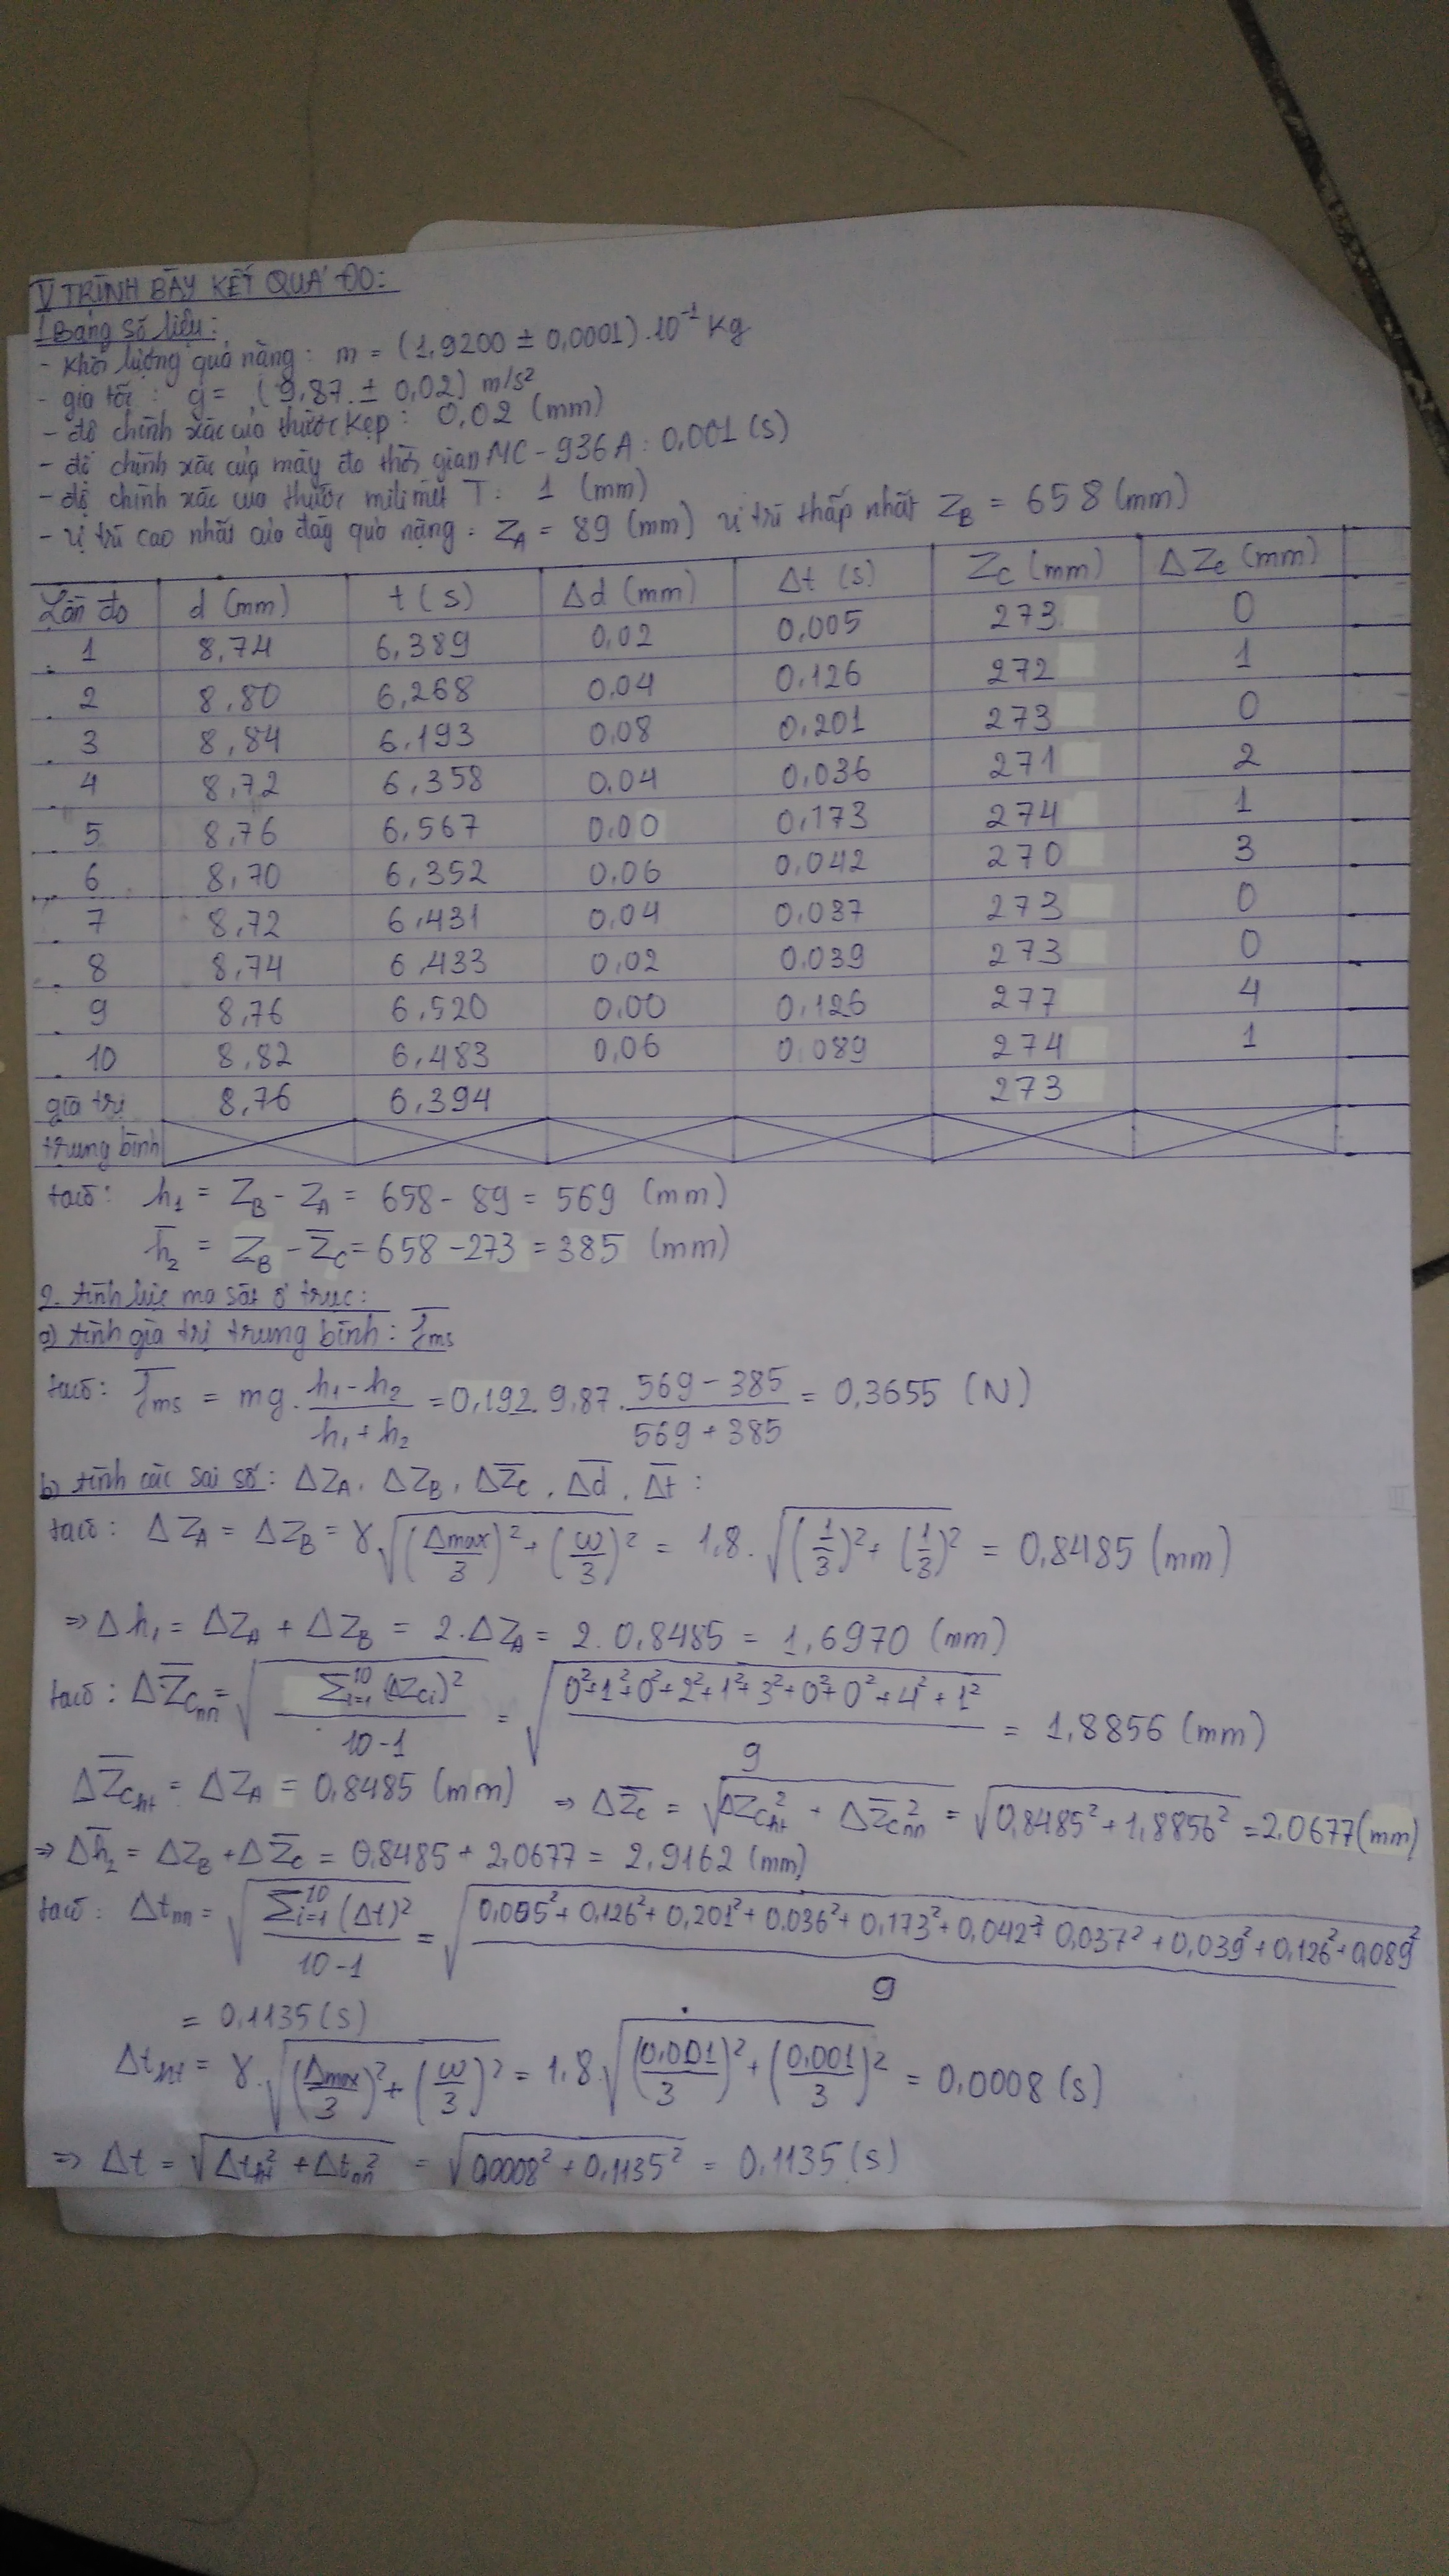 V TRÌNH BÀY KẾT QUẢ ĐO:
1 Bảng số liệu:
- Khối lượng quả nặng: m = (1,9200 ± 0,0001).10⁻¹ Kg
- gia tốc: g = (9,87 ± 0,02) m/s²
- độ chính xác của thước kẹp: 0,02 (mm)
- độ chính xác của máy đo thời gian MC-936A: 0,001 (s)
- độ chính xác của thước milimét T: 1 (mm)
- vị trí cao nhất của đáy quả nặng: Z_A = 89 (mm) vị trí thấp nhất Z_B = 658 (mm)
Lần đo d (mm) t (s) Δd (mm) Δt (s) Z_C (mm) ΔZ_C (mm)
1 8,74 6,389 0,02 0,005 273 0
2 8,80 6,268 0,04 0,126 272 1
3 8,84 6,193 0,08 0,201 273 0
4 8,72 6,358 0,04 0,036 271 2
5 8,76 6,567 0,00 0,173 274 1
6 8,70 6,352 0,06 0,042 270 3
7 8,72 6,431 0,04 0,037 273 0
8 8,74 6,433 0,02 0,039 273 0
9 8,76 6,520 0,00 0,126 277 4
10 8,82 6,483 0,06 0,089 274 1
giá trị 8,76 6,394 273
trung bình
ta có: h₁ = Z_B - Z_A = 658 - 89 = 569 (mm)
h̄₂ = Z_B - Z̄_C = 658 - 273 = 385 (mm)
2. tính lực ma sát ổ trục:
a) tính giá trị trung bình: f̄ms
ta có: f̄ms = mg. (h₁ - h₂)/(h₁ + h₂) = 0,192. 9,87. (569 - 385)/(569 + 385) = 0,3655 (N)
b) tính các sai số: ΔZ_A, ΔZ_B, ΔZ̄_C, Δd̄, Δt̄:
ta có: ΔZ_A = ΔZ_B = γ√((Δmax/3)² + (ω/3)²) = 1,8. √((1/3)² + (1/3)²) = 0,8485 (mm)
=> Δh₁ = ΔZ_A + ΔZ_B = 2.ΔZ_A = 2. 0,8485 = 1,6970 (mm)
ta có: ΔZ̄_Cnn = √(Σᵢ₌₁¹⁰ (ΔZ_Ci)²/(10-1)) = √((0²+1²+0²+2²+1²+3²+0²+0²+4²+1²)/9) = 1,8856 (mm)
ΔZ̄_Cht = ΔZ_A = 0,8485 (mm) => ΔZ̄_C = √(ΔZ_Cht² + ΔZ̄_Cnn²) = √(0,8485² + 1,8856²) = 2,0677 (mm)
=> Δh̄₂ = ΔZ_B + ΔZ̄_C = 0,8485 + 2,0677 = 2,9162 (mm)
ta có: Δtnn = √(Σᵢ₌₁¹⁰ (Δt)²/(10-1)) = √((0,005² + 0,126² + 0,201² + 0,036² + 0,173² + 0,042² + 0,037² + 0,039² + 0,126² + 0,089²)/9)
= 0,1135 (s)
Δtht = γ.√((Δmax/3)² + (ω/3)²) = 1,8.√((0,001/3)² + (0,001/3)²) = 0,0008 (s)
=> Δt = √(Δtht² + Δtnn²) = √(0,0008² + 0,1135²) = 0,1135 (s)